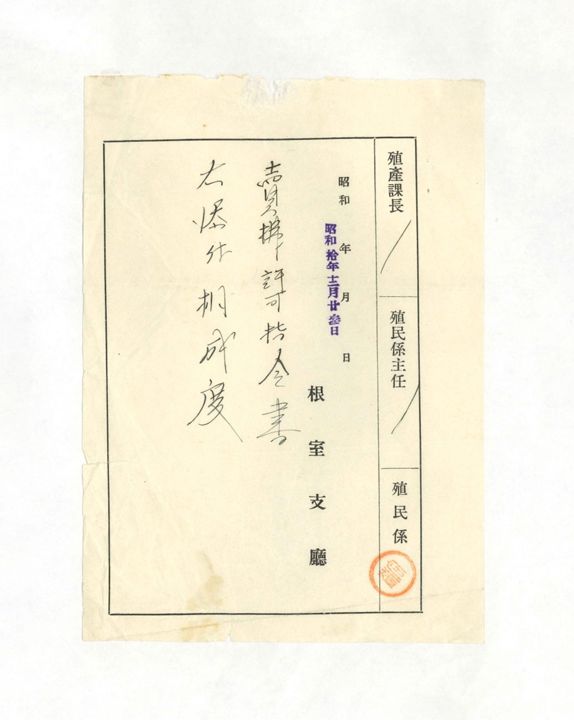 殖產課長
殖民係主任
殖民係
昭和 年 月 日
昭和拾年十二月廿叁日
根室支廳
賣拂許可指令書
右添付相成度